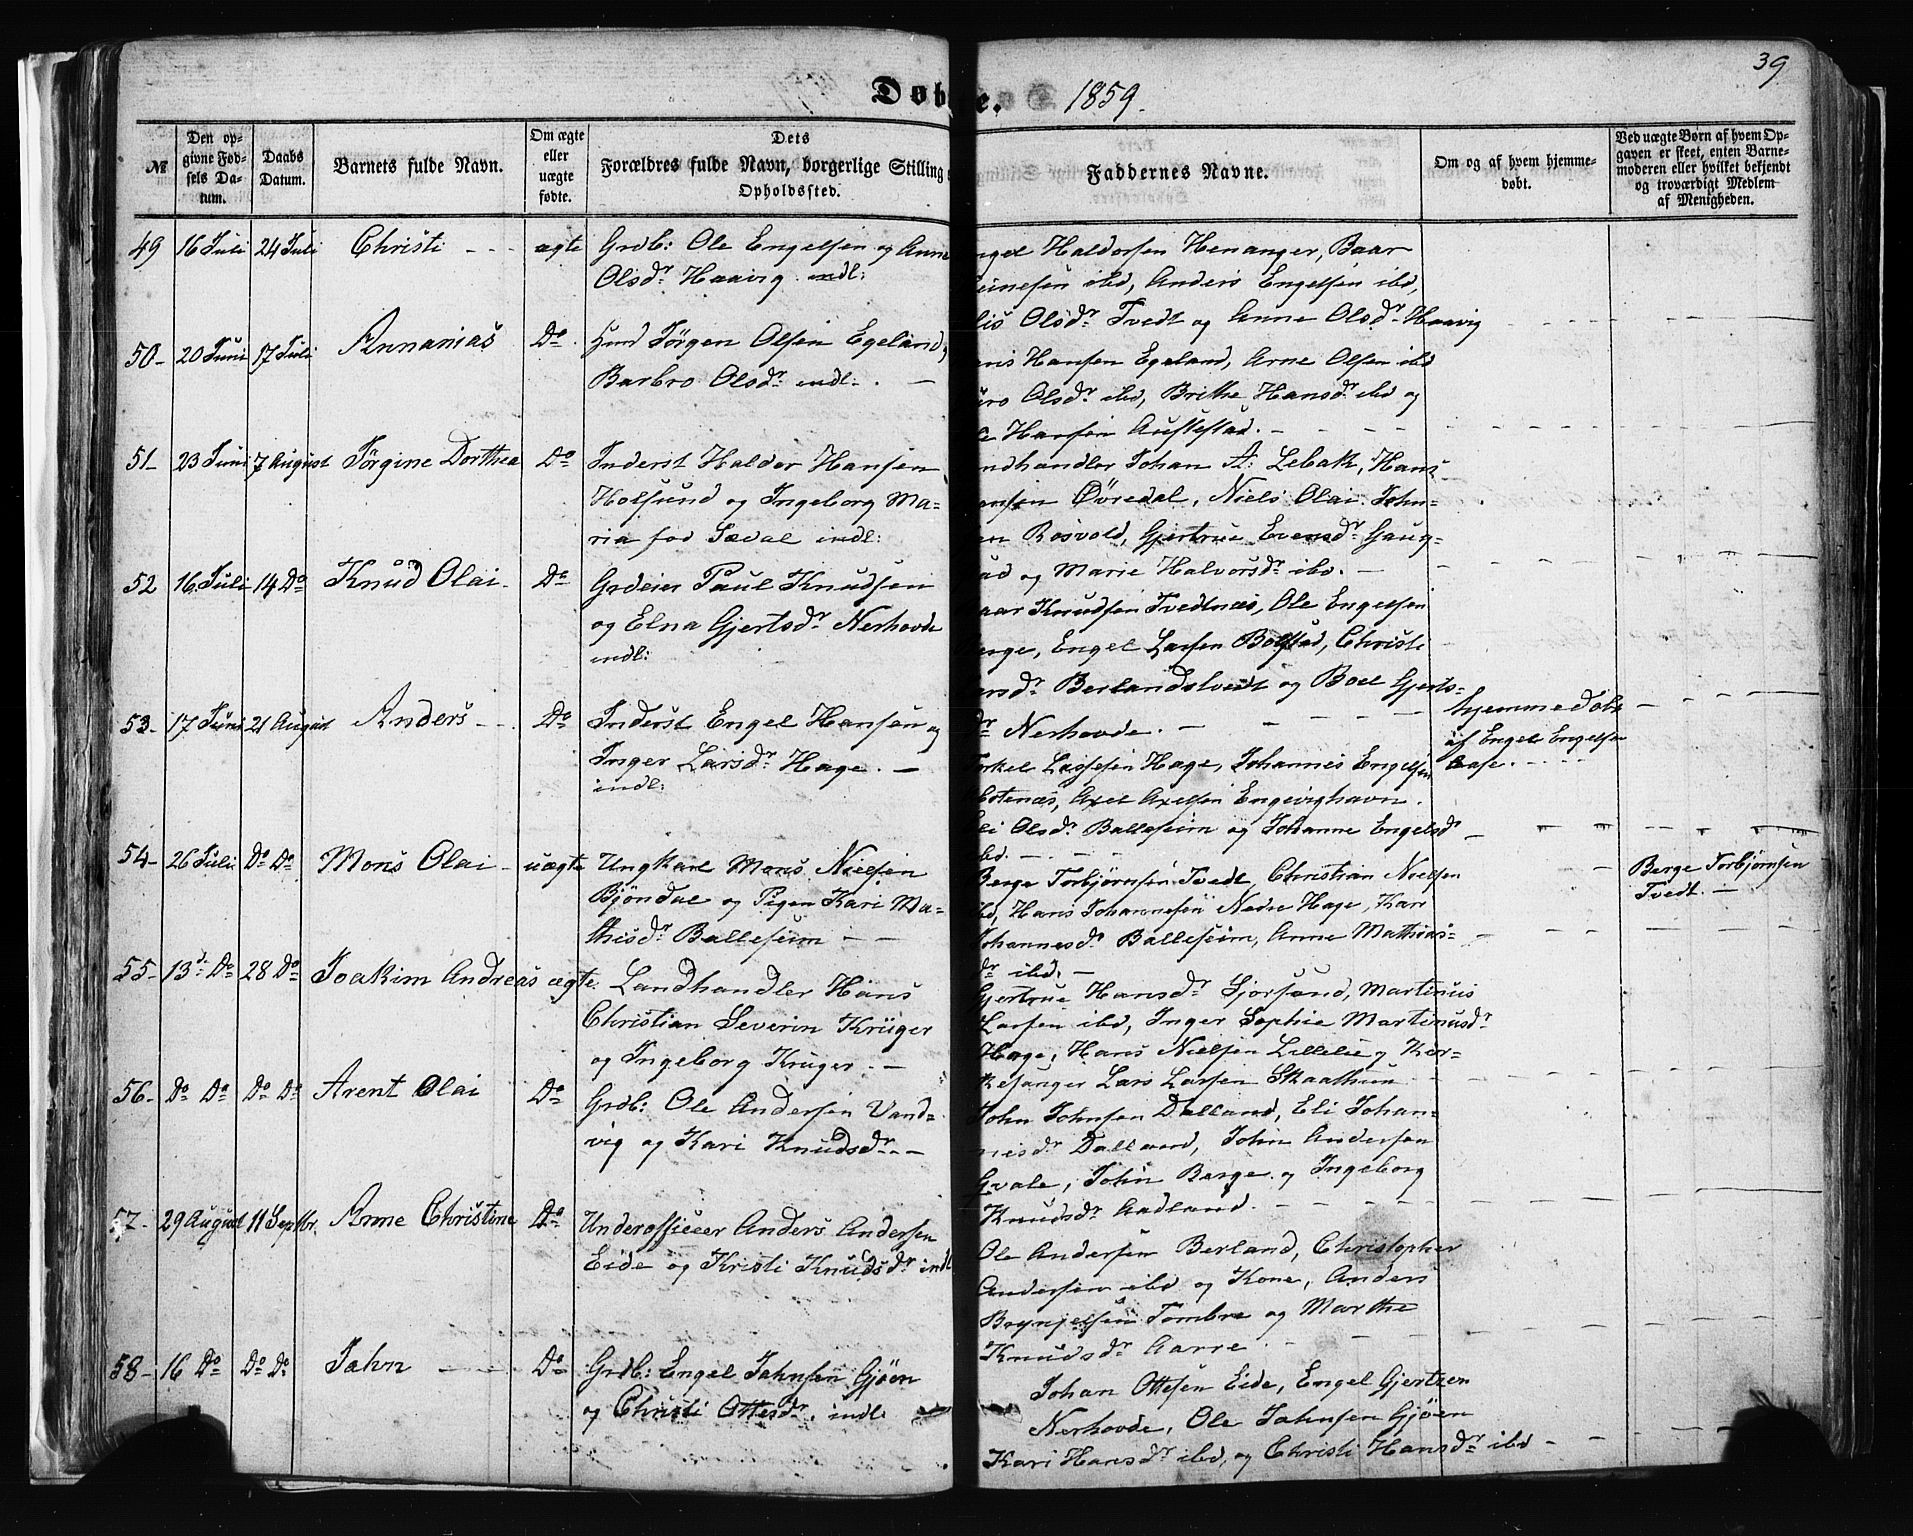 39
Døbte. 1859.
№
Den op-
givne Fød-
sels Da-
tum.
Daabs
Datum.
Barnets fulde Navn.
Om ægte
eller
uægte
fødte.
Dets
Forældres fulde Navn, borgerlige Stilling
Opholdssted.
Faddernes Navne.
Om og af hvem hjemme-
døbt.
Ved uægte Børn af hvem Op-
gaven er skeet, enten Barne-
moderen eller hvilket bekjendt
og troværdigt Medlem
af Menigheden.
49 16 Juli 24 Juli Christi - - - ægte Grdb: Ole Engelsen og Anne
Olsdr Haavig indl:
Haldorsen Henanger, Baar
ibd, Anders Engelsen ibd,
Olsdr Tvedt og Anne Olsdr Haavig
50- 20 Juni 17 Juli Annanias Do Jørgen Olsen Egeland,
Barbro Olsdr indl: . -
Hansen Egeland, Arne Olsen ibd
Olsdr ibd, Brithe Hansdr ibd og
Hansen Austestad. -
51- 23 Juni 7 August Jørgine Dorthea Do Inderst Haldor Hansen
Holsund og Ingeborg Ma-
ria fød Sæval indl:
ndhandler Johan A: Lebak, Hans
Øvredal, Niels Olai John-
en Rosvold, Gjertrue Evensdr Haug-
ad og Marie Halvorsdr ibd. -
52 16 Juli 14 Do Knud Olai - Do Grdeier Paul Knudsen
og Elna Gjertsdr Nerhovde
indl:
aar Knudsen Tvedtnæs, Ole Engelsen
erge, Engel Larsen Bolstad, Christi
ersdr Berlandstvedt og Boel Gjerts-
dr Nerhovde. -
53- 17 Juni 21 August Anders - - Do Inderst Engel Hansen og
Inger Larsdr Hage. -
indl:
Torkel Lassesen Hage, Johannes Engelsen
Axel Axelsen Engevighavn.
Eli Olsdr Balleseim og Johanne Engelsdr
ibd. -
hjemmedøbt
af Engel Engelsen
Aase. - - -
54- 26 Juli Do Do Mons Olai - uægte Ungkarl Mons Nielsen
Bjöndal og Pigen Kari Ma-
thisdr Balleseim - -
Berge Torbjørnsen Tvedt, Christian Nielsen
ibd, Hans Johannesen Nedre Hage, Kari
Johannesdr Balleseim, Anne Mathias-
dr ibd. -
Berge Torbjørnsen
Tvedt. -
55- 13de Do 28 Do Joakim Andreas ægte Landhandler Hans
Christian Severin Krüger
og Ingeborg Krüger - -
Gjertrue Hansdr Sjorsand, Martinus
Larsen ibd, Inger Sophie Martinusdr
Hage, Hans Nielsen Lillelie og Kir-
kesanger Lars Larsen Skaathun
56- Do Do Do Do Arent Olai Do Grdb: Ole Andersen Vand-
vig og Kari Knudsdr - -
John Johnsen Dalland, Eli Johan-
nesdr Dalland, John Andersen
Gvale, John Berge og Ingeborg
Knudsdr Aadland. -
57- 29 August 11 Septbr. Anne Christine Do Underofficeer Anders Andersen
Eide og Kristi Knudsdr indl
Ole Andersen Berland, Christopher
Andersen ibd og Kone, Anders
Brynjelsen Tombre og Marthe
Knudsdr Aarre. -
58- 16 Do Do Do Jahn - - Do Grdb: Engel Jahnsen Gjøen
og Christi Ottesdr indl
Johan Ottesen Eide, Engel Gjertsen
Nerhovde, Ole Jahnsen Gjøen
Kari Hansdr ibd, og Christi Hansdr ibd -